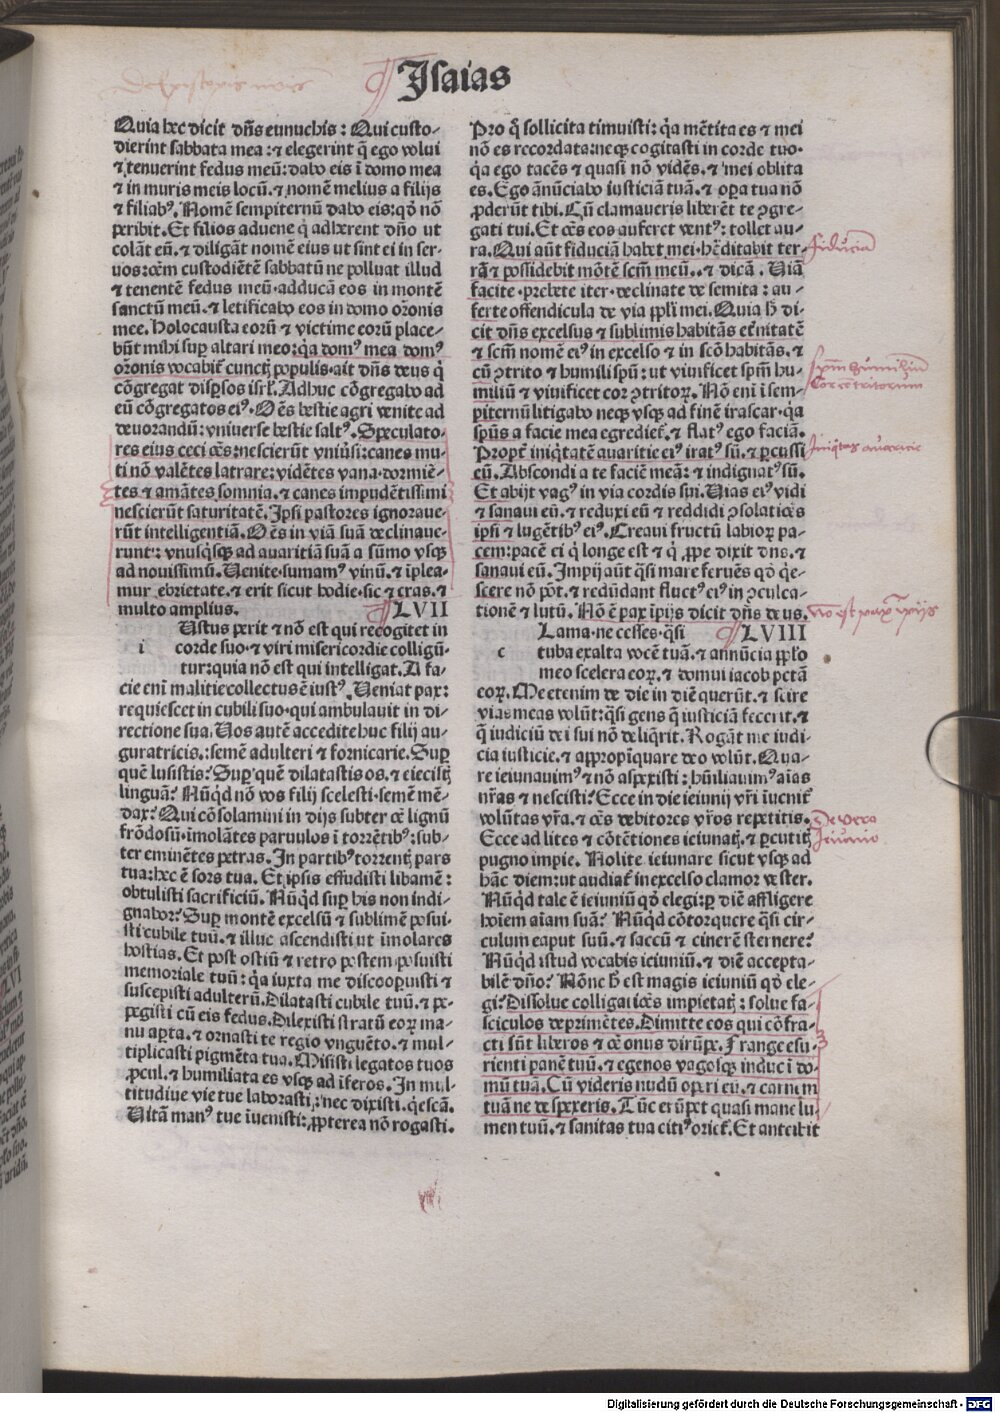 Isaias
Quia hec dicit dñs eunuchis: Qui custo-
dierint sabbata mea: ⁊ elegerint q̃ ego volui
⁊ tenuerint fedus meũ: dabo eis ĩ domo mea
⁊ in muris meis locũ. ⁊ nomẽ melius a filijs
⁊ filiabꝰ. Nomẽ sempiternũ dabo eis: qđ nõ
peribit. Et filios aduene q̇ adherent dño ut
colãt eũ. ⁊ diligãt nomẽ eius ut sint ei in ser-
uos: oẽm custodiẽtẽ sabbatũ ne polluat illud
⁊ tenentẽ fedus meũ. adducã eos in montẽ
sanctũ meũ. ⁊ letificabo eos in domo or̃onis
mee. Holocausta eorũ ⁊ victime eorũ place-
bũt mihi suꝑ altari meo: q̇a domꝰ mea domꝰ
or̃onis vocabit̃ cunctꝭ populis. ait dñs deus q̇
cõgregat disꝑsos isrl̃. Adhuc cõgregabo ad
eũ cõgregatos eiꝰ. Oẽs bestie agri venite ad
deuorandũ: vniuerse bestie saltꝰ. Speculato-
res eius ceci oẽs: nescierũt vniũsi: canes mu-
ti nõ valẽtes latrare: vidẽtes vana. dormiẽ-
tes ⁊ amãtes somnia. ⁊ canes impudẽtissimi
nescierũt saturitatẽ. Ipsi pastores ignoraue-
rũt intelligentiã. Oẽs in viã suã declinaue-
runt: vnusq̇sqꝫ ad auaritiã suã a sũmo vsqꝫ
ad nouissimũ. Venite. sumamꝰ vinũ. ⁊ ĩplea-
mur ebrietate. ⁊ erit sicut hodie. sic ⁊ cras. ⁊
multo amplius. LVII
Ustus perit ⁊ nõ est qui recogitet in
i corde suo. ⁊ viri misericordie colligũ-
tur: quia nõ est qui intelligat. A fa-
cie enĩ malitie collectus ẽ iustꝰ. Veniat pax:
requiescet in cubili suo. qui ambulauit in di-
rectione sua. Vos autẽ accedite huc filij au-
guratricis.: semẽ adulteri ⁊ fornicarie. Suꝑ
quẽ lusistis? Suꝑ quẽ dilatastis os. ⁊ eiecistꝭ
linguã? Nũqđ nõ vos filij scelesti. semẽ mẽ-
dax? Qui cõsolamini in dijs subter oẽ lignũ
frõdosũ. imolãtes paruulos ĩ torrẽtibꝰ: sub-
ter eminẽtes petras. In partibꝰ torrentꝭ pars
tua: hec ẽ sors tua. Et ipsis effudisti libamẽ:
obtulisti sacrificiũ. Nũqđ suꝑ his non indi-
gnabor? Suꝑ montẽ excelsũ ⁊ sublimẽ posui-
sti cubile tuũ. ⁊ illuc ascendisti ut ĩmolares
hostias. Et post ostiũ ⁊ retro postem posuisti
memoriale tuũ: q̇a iuxta me discooꝑuisti ⁊
suscepisti adulterũ. Dilatasti cubile tuũ. ⁊ pe-
pegisti cũ eis fedus. Dilexisti stratũ eorꝝ ma-
nu aꝑta. ⁊ ornasti te regio vnguẽto. ⁊ mul-
tiplicasti pigmẽta tua. Misisti legatos tuos
ꝓcul. ⁊ humiliata es vsqꝫ ad ĩferos. In mul-
titudine vie tue laborasti.: nec dixisti. q̇escã.
Vitã manꝰ tue ĩuenisti: ꝓpterea nõ rogasti.
Pro q̃ sollicita timuisti: q̇a mẽtita es ⁊ mei
nõ es recordata: neqꝫ cogitasti in corde tuo.
q̇a ego tacẽs ⁊ quasi nõ vidẽs. ⁊ mei oblita
es. Ego ãnũciabo iusticiã tuã. ⁊ oꝑa tua nõ
ꝓderũt tibi. Cũ clamaueris liberẽt te ꝯgre-
gati tui. Et oẽs eos auferet ventꝰ: tollet au-
ra. Qui aũt fiduciã habet mei. hẽditabit ter-
rã ⁊ possidebit mõtẽ scm̃ meũ.. ⁊ dicã. Viã
facite. prebete iter. declinate de semita: au-
ferte offendicula de via ppl̃i mei. Quia h̃ di-
cit dñs excelsus ⁊ sublimis habitãs et̃nitatẽ
⁊ scm̃ nomẽ eiꝰ in excelso ⁊ in scõ habitãs. ⁊
cũ ꝯtrito ⁊ humili spũ: ut viuificet spm̃ hu-
miliũ ⁊ viuificet cor ꝯtritorꝝ. Nõ enĩ ĩ sem-
piternũ litigabo neqꝫ vsqꝫ ad finẽ irascar. q̇a
spũs a facie mea egrediet̃. ⁊ flatꝰ ego faciã.
Propt̃ iniq̇tatẽ auaritie eiꝰ iratꝰ sũ. ⁊ ꝑcussi
eũ. Abscondi a te faciẽ meã: ⁊ indignatꝰ sũ.
Et abijt vagꝰ in via cordis sui. Vias eiꝰ vidi
⁊ sanaui eũ. ⁊ reduxi eũ ⁊ reddidi ꝯsolatiões
ipsi ⁊ lugẽtibꝰ eiꝰ. Creaui fructũ labiorꝝ pa-
cem: pacẽ ei q̇ longe est ⁊ q̇ ꝓpe dixit dns. ⁊
sanaui eũ. Impij aũt q̃si mare feruẽs qđ q̇e-
scere nõ põt. ⁊ redũdant fluctꝰ eiꝰ in ꝯculca-
tionẽ ⁊ lutũ. Nõ ẽ pax ĩpijs dicit dñs deus.
Lama. ne cesses. q̃si LVIII
c tuba exalta vocẽ tuã. ⁊ annũcia ppl̃o
meo scelera eorꝝ. ⁊ domui iacob pctã
eorꝝ. Me etenim de die in diẽ querũt. ⁊ scire
vias meas volũt: q̃si gens q̃ iusticiã fecerit. ⁊
q̃ iudiciũ dei sui nõ deliq̇rit. Rogãt me iudi-
cia iusticie. ⁊ appropĩquare deo volũt. Qua-
re ieiunauimꝰ ⁊ nõ aspexisti: hũiliauimꝰ aĩas
nr̃as ⁊ nescisti? Ecce in die ieiunij vr̃i ĩuenit̃
volũtas vr̃a. ⁊ oẽs debitores vr̃os repetitis.
Ecce ad lites ⁊ cõtẽtiones ieiunatꝭ. ⁊ ꝑcutitꝭ
pugno impie. Nolite ieiunare sicut vsqꝫ ad
hãc diem: ut audiat̃ in excelso clamor vester.
Nũqđ tale ẽ ieiuniũ qđ elegi: ꝑ diẽ affligere
hoĩem aĩam suã? Nũqđ cõtorquere q̃si cir-
culum caput suũ. ⁊ saccũ ⁊ cinerẽ sternere?
Nũqđ istud vocabis ieiuniũ. ⁊ diẽ accepta-
bilẽ dño? Nõne h̃ est magis ieiuniũ qđ ele-
gi? Dissolue colligatiões impietatꝭ: solue fa-
sciculos deprimẽtes. Dimitte eos qui cõfra-
cti sũt liberos ⁊ oẽ onus dirũpe. Frange esu-
rienti panẽ tuũ. ⁊ egenos vagosqꝫ induc ĩ do-
mũ tuã. Cũ videris nudũ oꝑi eũ. ⁊ carnem
tuã ne despexeris. Tũc erũpet quasi mane lu-
men tuũ. ⁊ sanitas tua citiꝰ oriet̃. Et anteibit
fiducia
Spm̃ humiliũ
Cor contritorum
Iniq̇tas auaricie
No est pax ĩpijs
De vero
Ieiunio
Digitalisierung gefördert durch die Deutsche Forschungsgemeinschaft - DFG